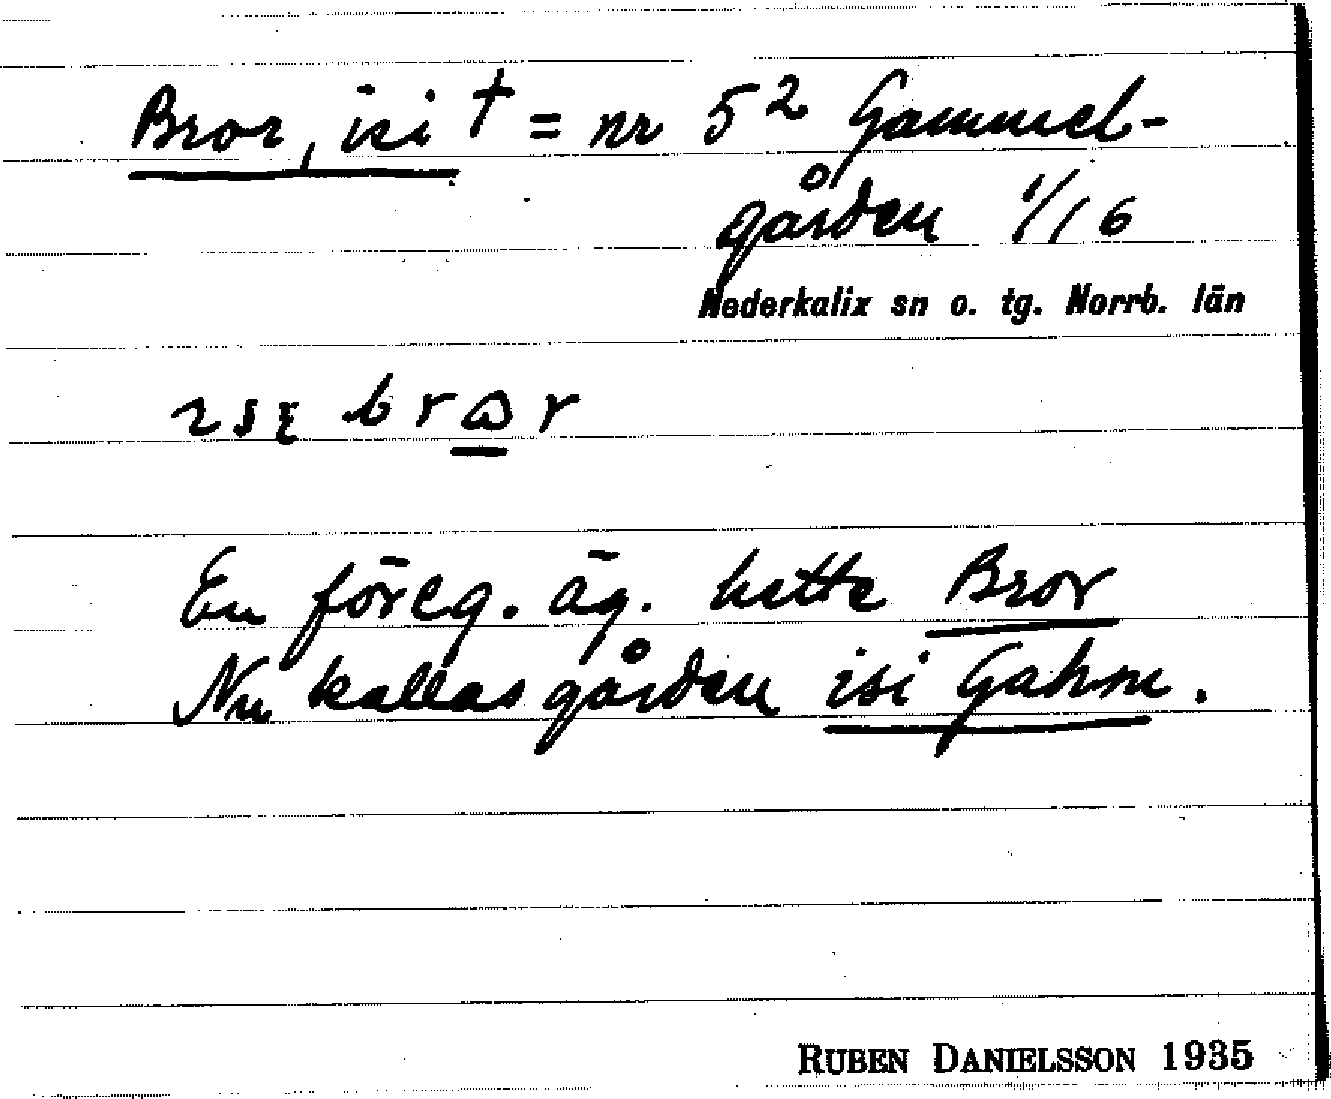 Bror, isi † = nr 5² Gammel-
gården 1/16
Nederkalix sn o. tg. Norrb. län
En föreg. äg. hette Bror
Nu kallas gården isi Gahm.
RUBEN DANIELSSON 1935